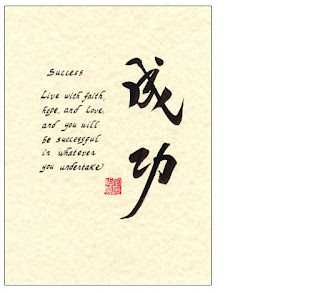 Success
Live with faith,
hope, and love,
and you will
be successful
in whatever
you undertake
成功